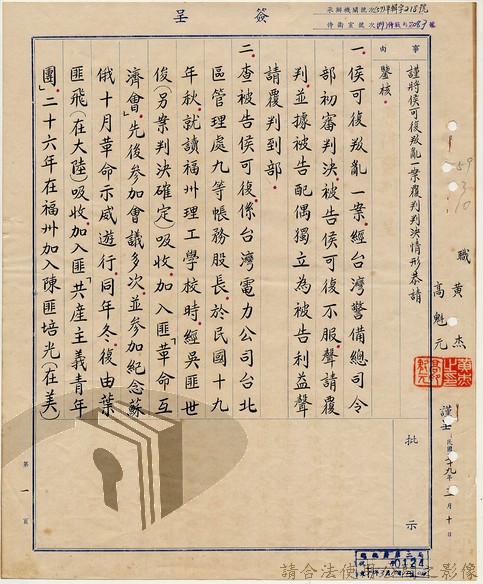 簽呈
承辦機關號次(59)年輔字218號
侍衛室號次
事由
謹將侯可復叛亂一案覆判判決情形恭請
鑒核。
職 黃杰
高魁元
謹呈
民國
年
月十日
一、侯可復叛亂一案，經台灣警備總司令
部初審判決，被告侯可復不服，聲請覆
判，並據被告配偶獨立為被告利益聲
請覆判到部。
二、查被告侯可復，係台灣電力公司台北
區管理處九等帳務股長，於民國十九
年秋，就讀福州理工學校時，經吳匪世
俊(另案判決確定)吸收，加入匪「革命互
濟會」，先後參加會議多次，並參加紀念蘇
俄十月革命示威遊行，同年冬，復由葉
匪飛(在大陸)吸收加入匪「共產主義青年
團」，二十六年在福州加入陳匪培光(在美)
批示
第一頁
0124
請合法使用
之影像